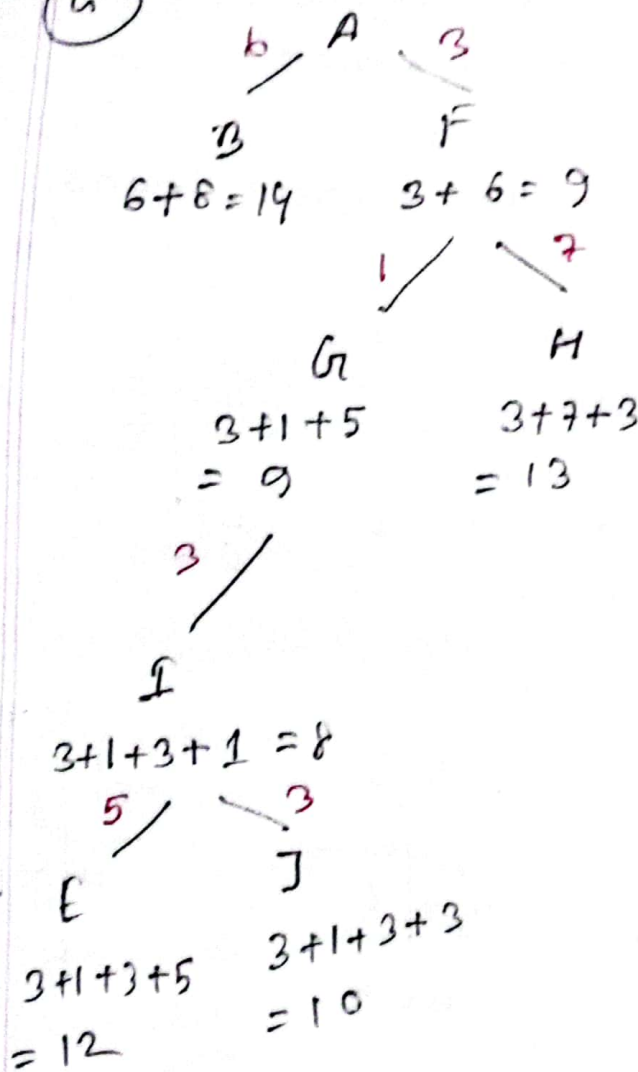 6 A 3
B F
6+8=14 3+6=9
1 7
G H
3+1+5 3+7+3
= 9 = 13
3
I
3+1+3+1 = 8
5 3
E J
3+1+3+5 3+1+3+3
= 12 = 10